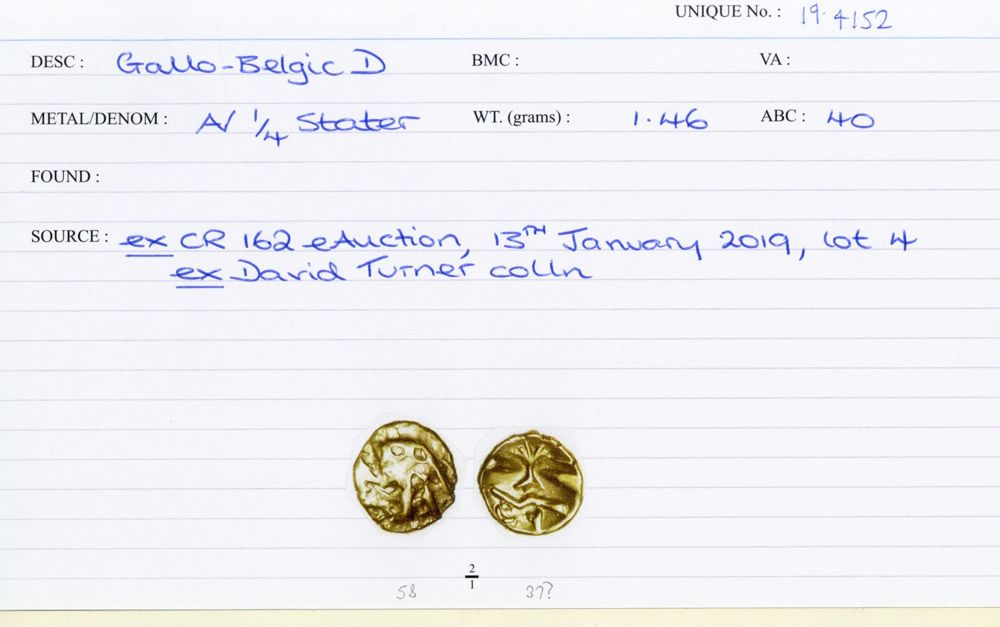 UNIQUE No. : 19.4152
DESC : Gallo-Belgic D BMC : VA :
METAL/DENOM : A/ 1/4 Stater WT. (grams) : 1.46 ABC : 40
FOUND :
SOURCE : ex CR 162 eAuction, 13TH January 2019, lot 4
ex David Turner colln
2/1
58 37?